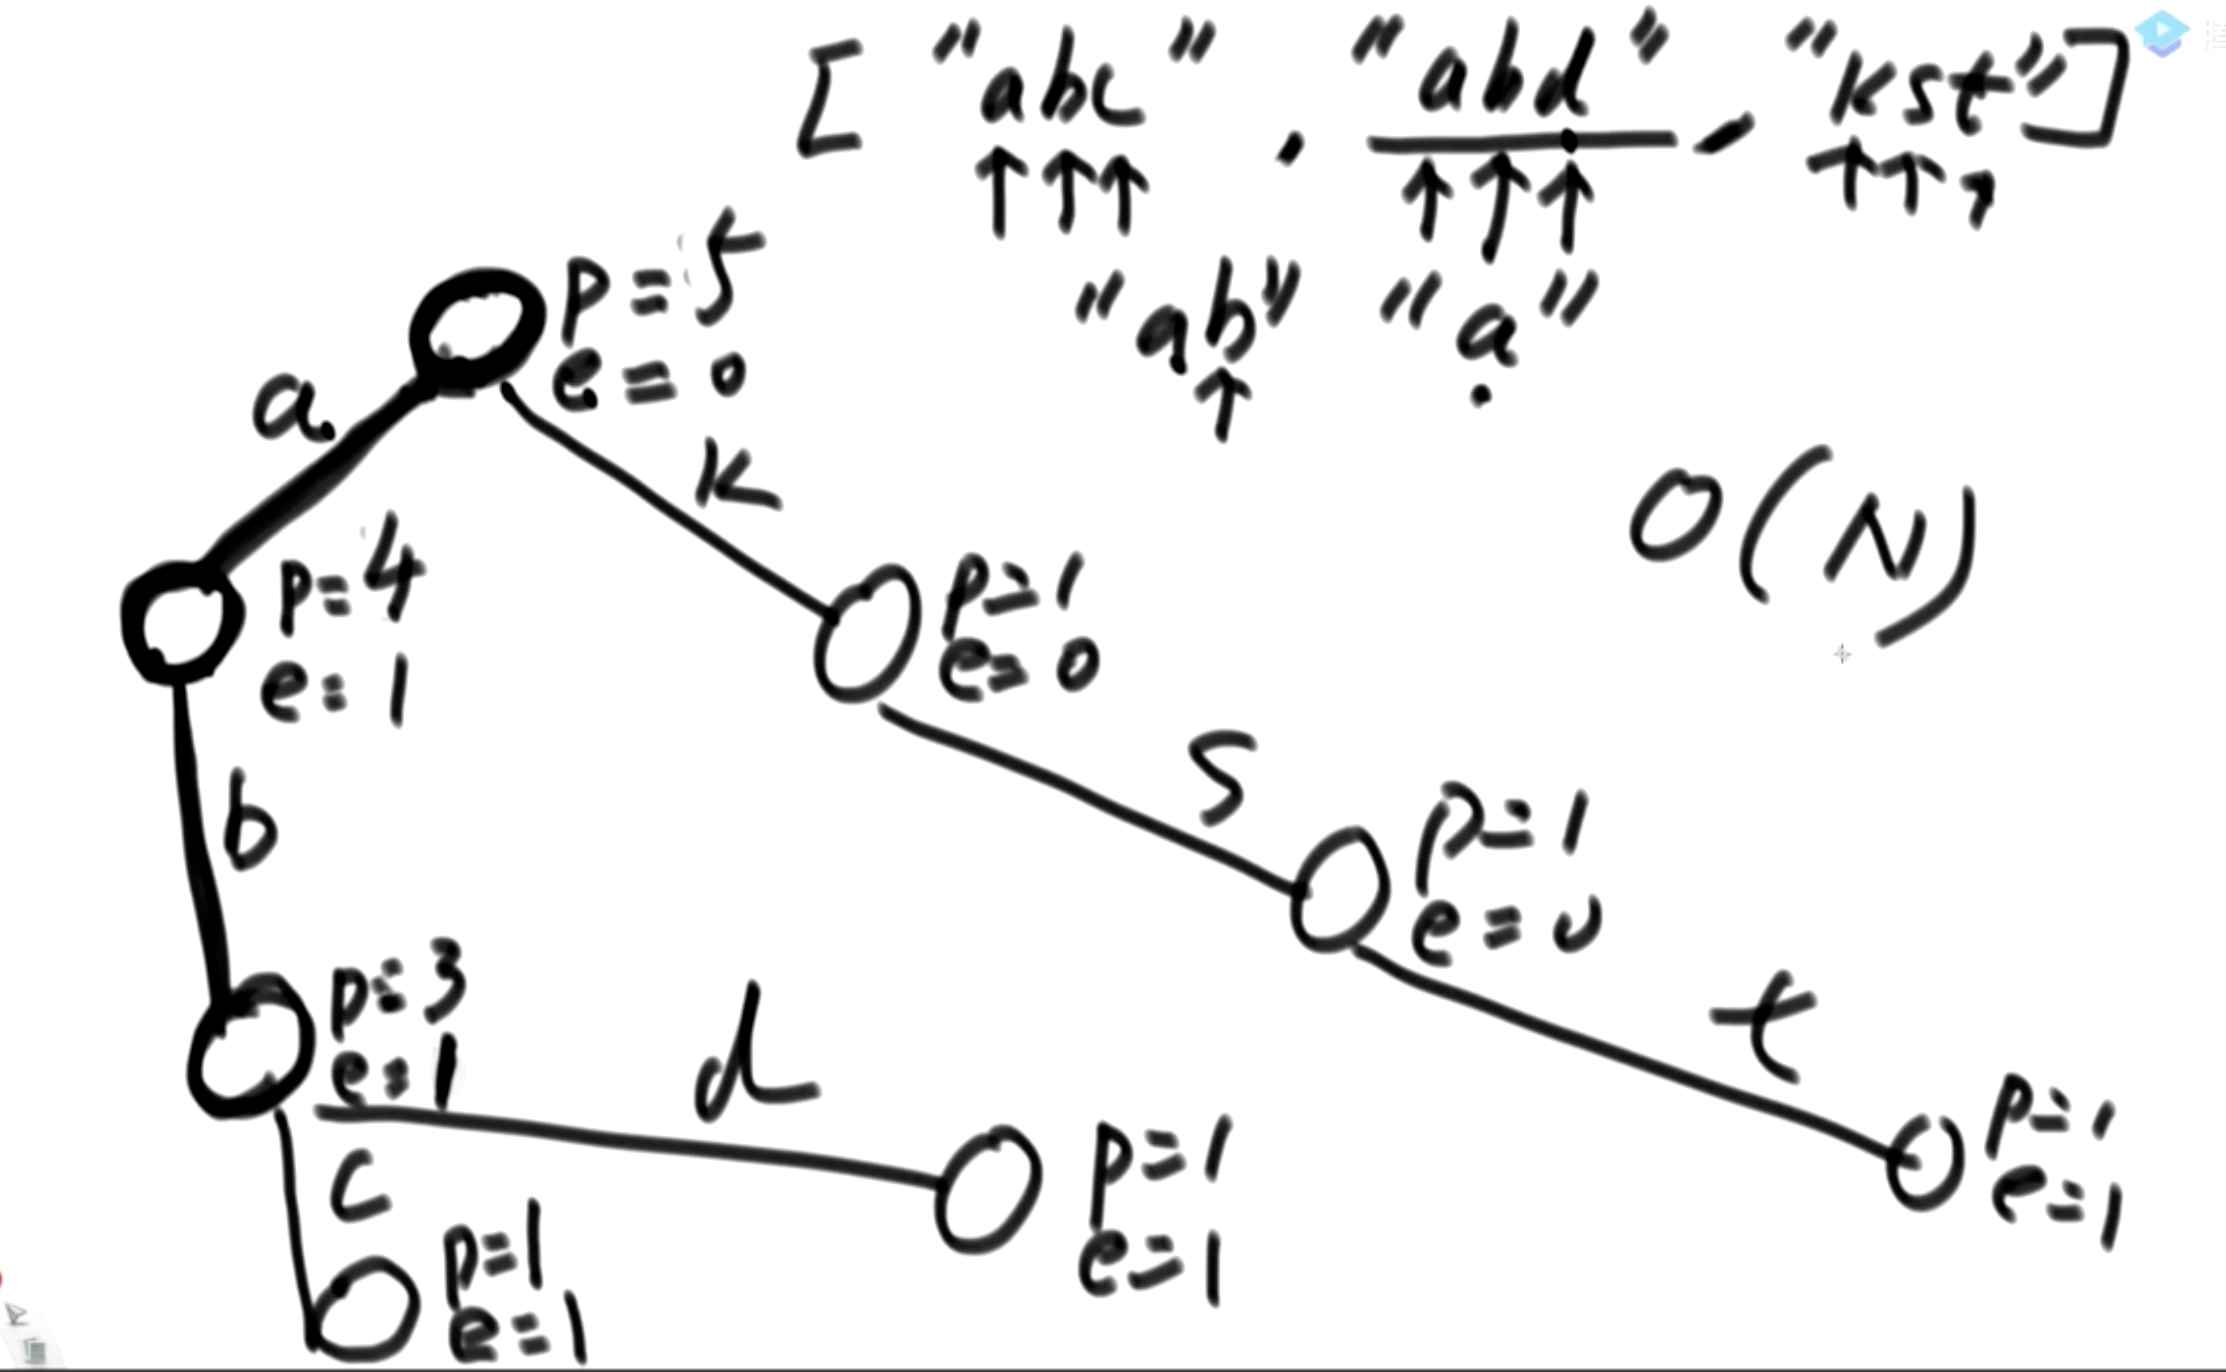 ["abc", "abd", "kst"]
"ab" "a"
p=5
e=0
a
k
O(N)
p=4
e=1
p=1
e=0
b
s
p=1
e=0
p=3
e=1
d
t
c
p=1
e=1
p=1
e=1
p=1
e=1